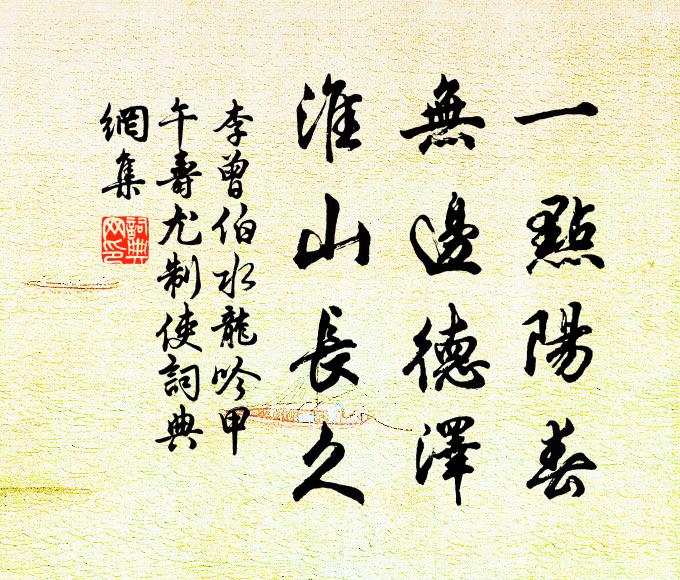 一點陽春
無邊德澤
淮山長久
李曾伯水龍吟甲
午壽尤制使詞典
網集
詞典
网印